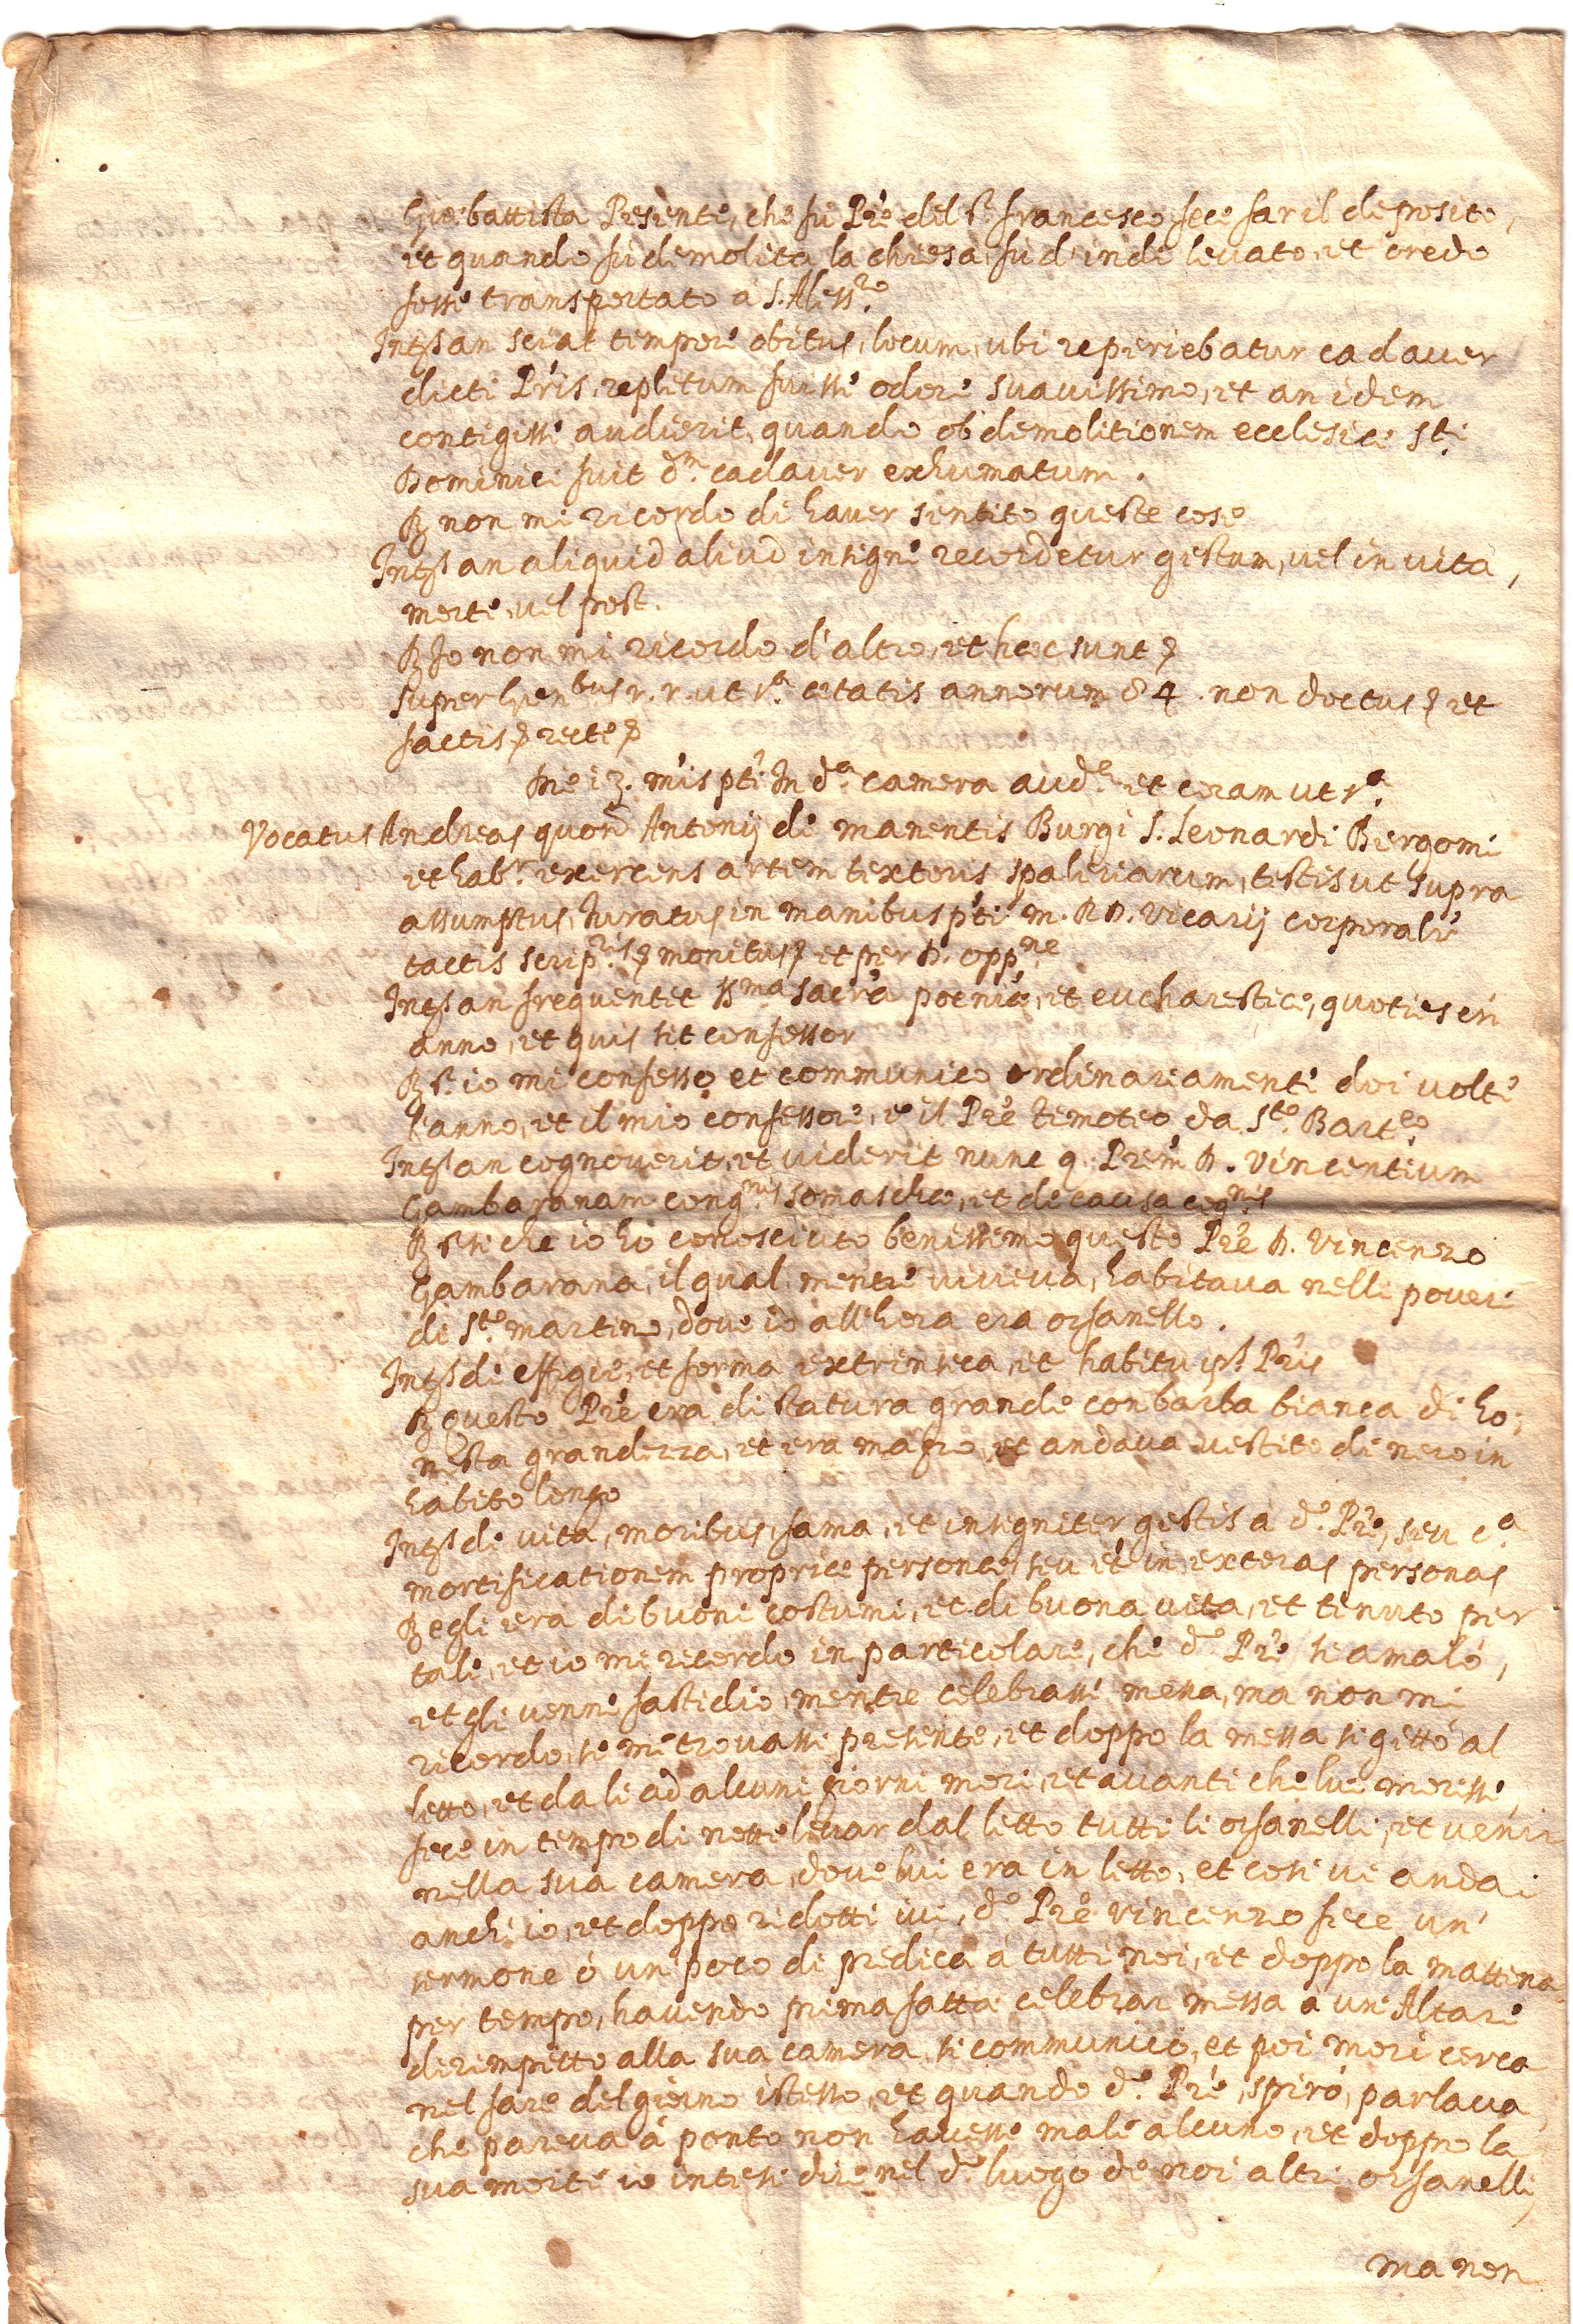 Gio: battista Pesenti, che fù Prè del S.r francesco fece far il deposito,
et quando fù demolita la chiesa, fù d'indi levato, et credo
fosse transportato à S. Aless.ro
Ingt an sciat tempore obitus, locum, ubi reperiebatur cadaver
dicti Pris, repletum fuisse odore suavissimo, et an idem
contigisse audierit, quando ob demolitionem ecclesiæ S.ti
Dominici fuit d.m cadaver exhumatum.
R non mi ricordo di haver sentito queste cose
Ingt an aliquid aliud insigne recordetur gestum, vel in vita,
morte, vel post.
R Io non mi ricordo d'altro, et hæc sunt
super gñenbus r. r. ut s.a ætatis annorum 84. non doctus et
factis recte
Die 13. mis pti In d.a camera aud.æ et coram ut s.a
Vocatus Andreas quon Antonij de manentis Burgi S. Leonardi Bergomi
et hab.r exercens artem textoris spaleriarum, testis ut supra
assumptus, Iuratus in manibus pti m. R D. Vicarij corporalr
tactis scrip.ris monitus et per D. opp.ne
Ingt an frequentet ss.ma sacra poeniæ, et eucharestiæ, quoties in
anno, et quis sit confessor
R S.r io mi confesso et communico ordinariamente doi volte
l'anno, et il mio confessore, è il Prè Timoteo da S.to Bart.eo
Ingt an cognoverit, et viderit nunc q. Prem D. Vincentium
Gambaranam cong.nis somaschæ, et de causa cog.nis
R S.r si che io hò conosciuto benissimo questo Prè D. Vincenzo
Gambarana, il qual mentre viveva, habitava nelli poveri
di S.to martino, dove io all'hora era orfanello.
Ingt de effigie, et forma extrinseca, et habitu ips.s Pris
R Questo Prè era di statura grande con barba bianca di ho:
nesta grandezza, et era magro, et andava vestito di nero in
habito longo
Ingt de vita, moribus, fama, et insigniter gestis à d.o Prè, seu c.a
mortificationem propriæ personæ, seu et in exteras personas
R egli era di buoni costumi, et di buona vita, et tenuto per
tale, et io mi ricordo in particolare, che d.o Prè si amalò,
et gli venne fastidio, mentre celebrasse messa, ma non mi
ricordo, se mi trovasse presente, et doppo la messa si gittò al
letto, et da li ad alcuni giorni morì, et avanti che lui morisse,
fece in tempo di notte levar dal letto tutti li orfanelli, et venir
nella sua camera, dove lui era in letto, et così vi andai
anch'io, et doppo ridotti ivi, d.o Prè Vincenzo fece un'
sermone ò un' poco di predica à tutti noi, et doppo la mattina
per tempo, havendo prima fatta celebrar messa a un' Altare
dirimpetto alla sua camera, si communicò, et poi morì cerca
nel fare del giorno istesso, et quando d.o Prè, spirò, parlava,
che pareva à ponto non havesse male alcuno, et doppo la
sua morte io intesi dire nel d.o luogo de noi altri orfanelli,
ma non